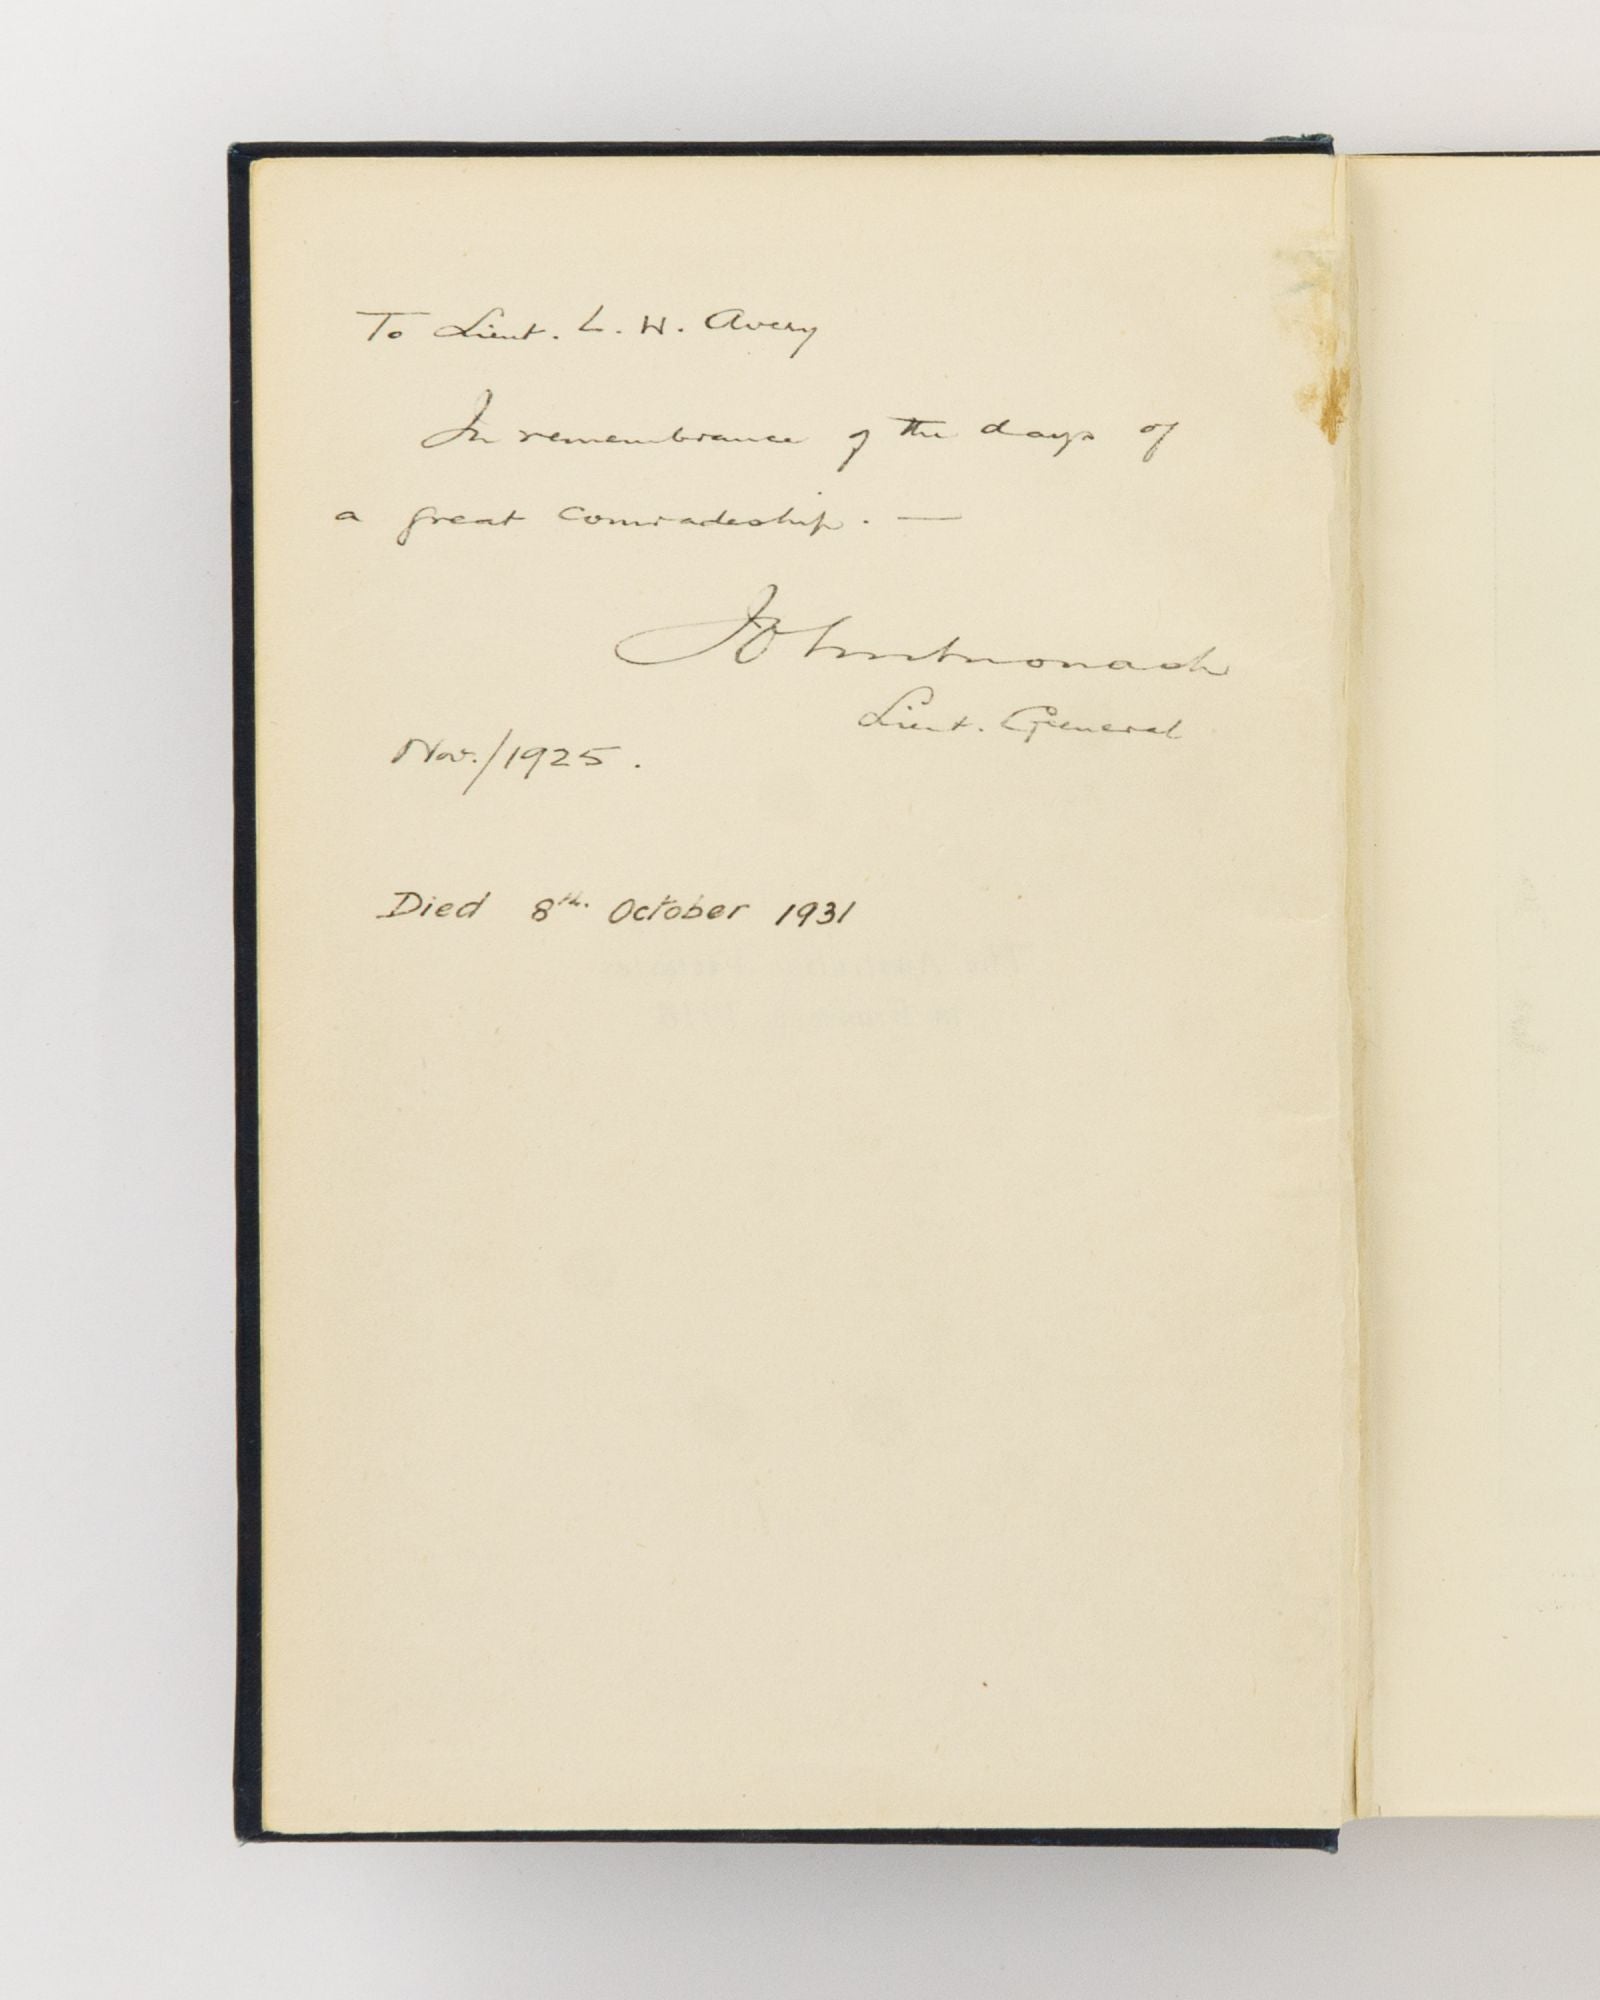 To Lieut. L. H. Avery
In remembrance of the days of
a great comradeship. —
John Monash
Lieut. General
Nov./1925.
Died 8th. October 1931